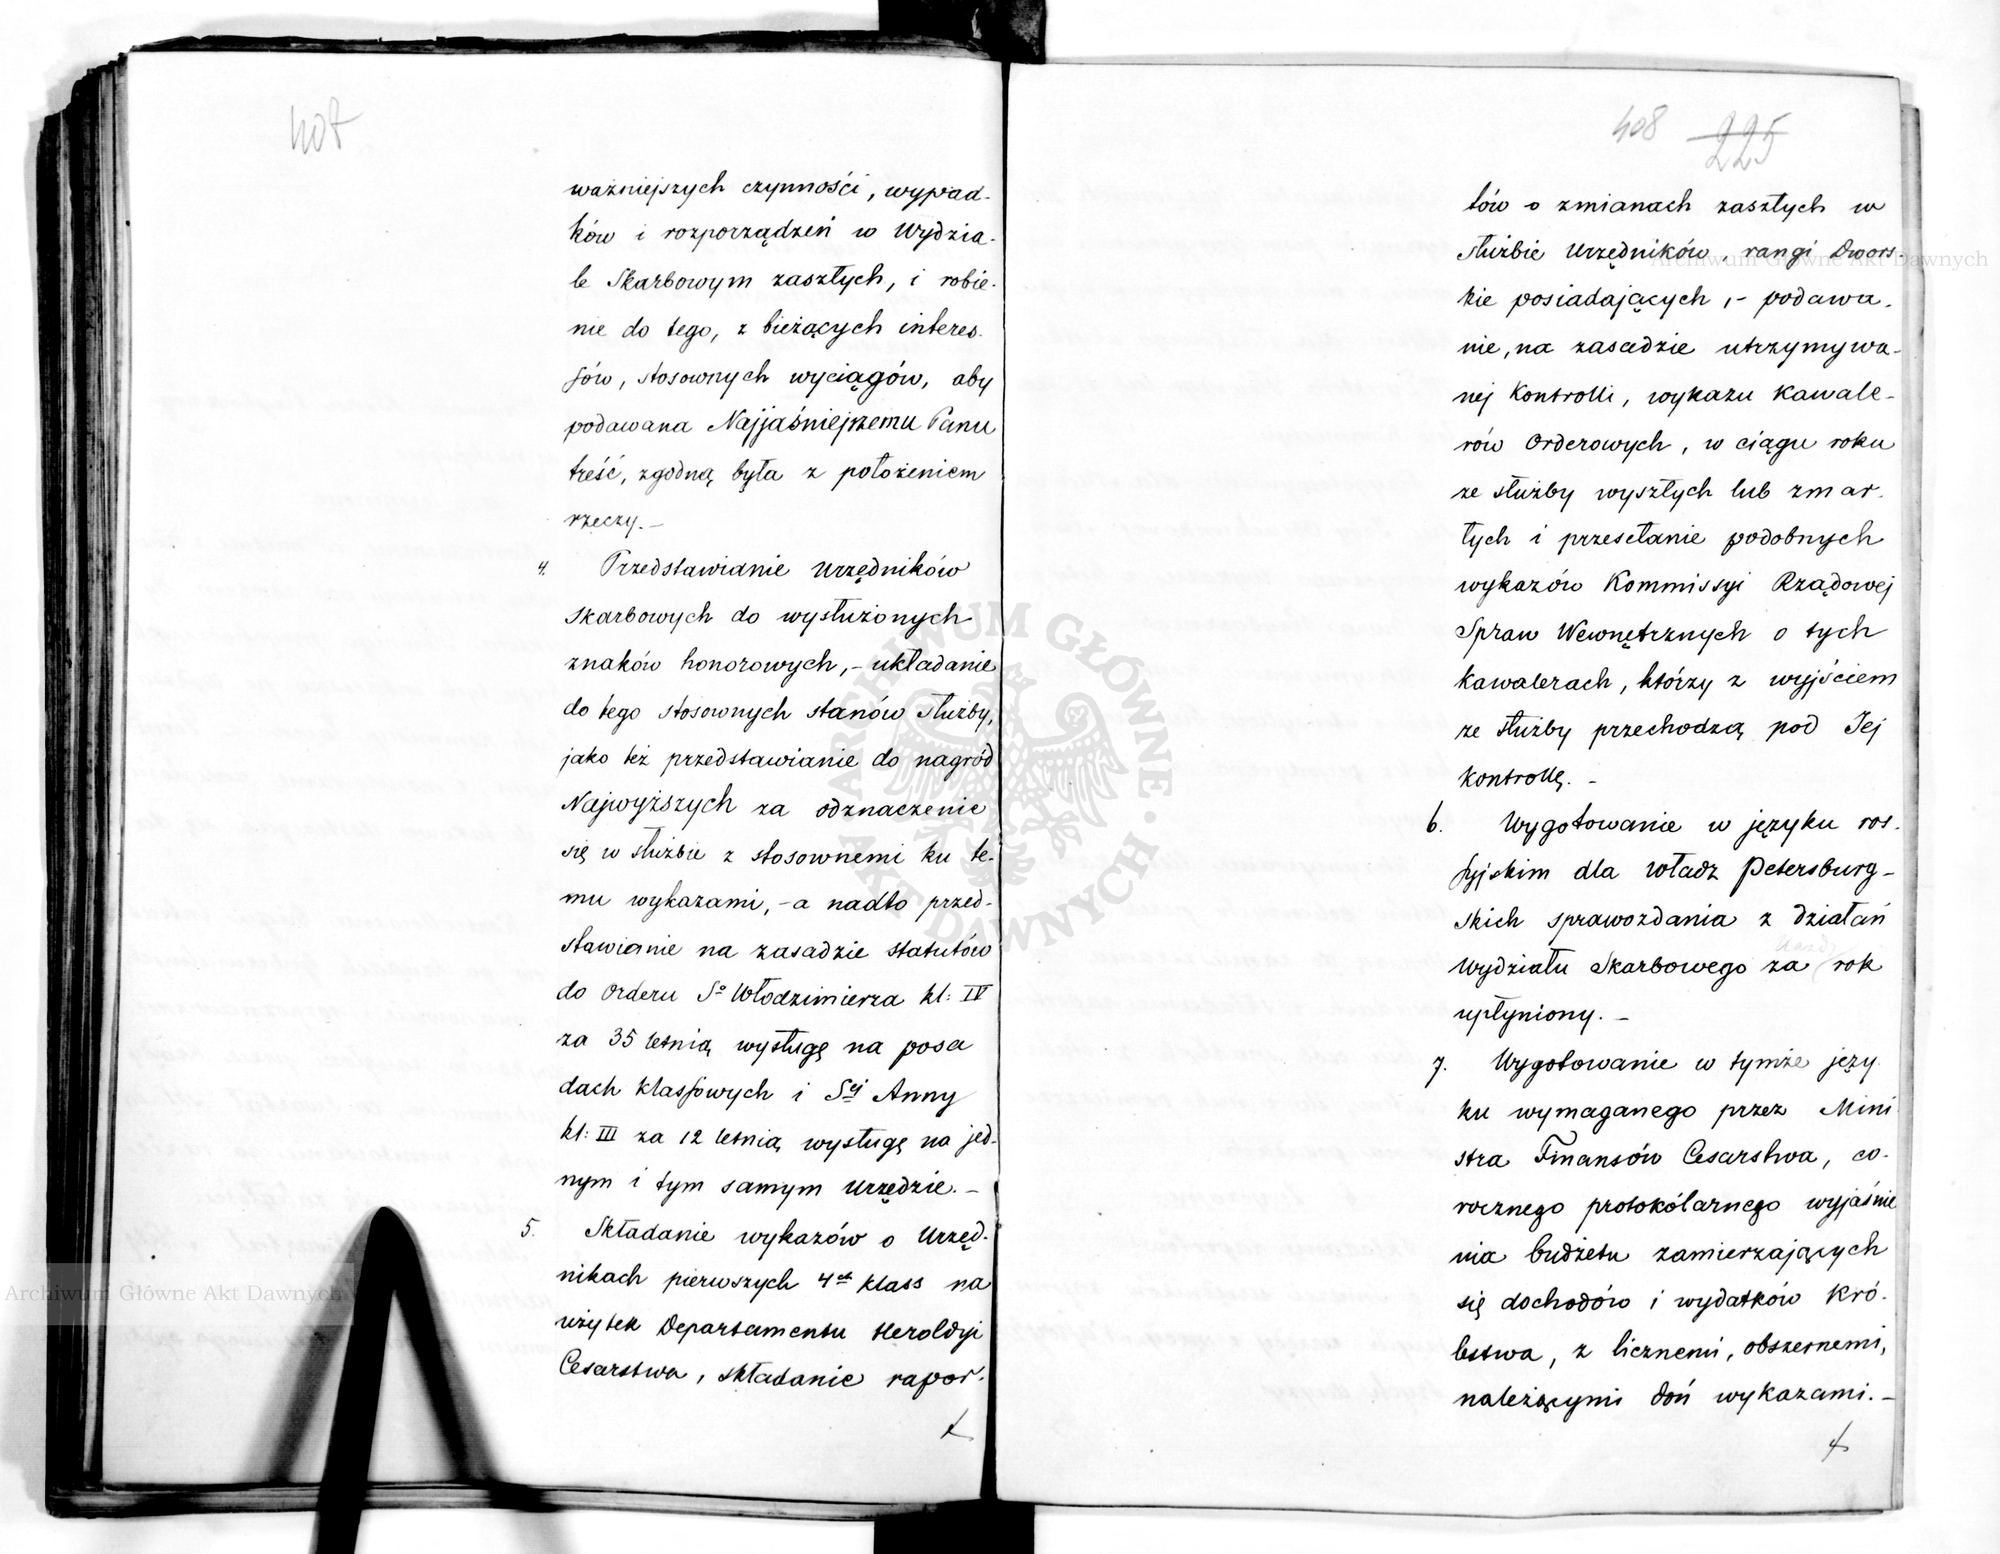 407
ważniejszych czynności, wypad-
ków i rozporządzeń w Wydzia-
le Skarbowym zaszłych, i robie-
nie do tego, z bieżących interes-
sów, stosownych wyciągów, aby
podawana Najjaśniejszemu Panu
treść, zgodną była z położeniem
rzeczy. -
4. Przedstawianie Urzędników
Skarbowych do wysłużonych
znaków honorowych, - układanie
do tego stosownych stanów służby,
jako też przedstawianie do nagród
Najwyższych za odznaczenie
się w służbie z stosownemi ku te-
mu wykazami, - a nadto przed-
stawianie na zasadzie statutów
do Orderu Sgo Włodzimierza kl: IV
za 35 letnią wysługę na posa
dach klassowych i Sej Anny
kl: III za 12 letnią wysługę na jed-
nym i tym samym Urzędzie. -
5. Składanie wykazów o Urzęd-
nikach pierwszych 4ch klass na
użytek Departamentu Heroldyi
Cesarstwa, składanie rapor-
408 225
tów o zmianach zaszłych w
służbie Urzędników, rangi Dwors-
kie posiadających, - podawa-
nie, na zasadzie utrzymywa-
nej Kontrolli, wykazu Kawale-
rów Orderowych, w ciągu roku
ze służby wyszłych lub zmar-
łych i przesełanie podobnych
wykazów Kommissyi Rządowej
Spraw Wewnętrznych o tych
kawalerach, którzy z wyjściem
ze służby przechodzą pod Jej
kontrollę. -
6. Wygotowanie w języku ros-
syjskim dla władz Petersburg-
skich sprawozdania z działań
Wydziału Skarbowego za rok
upłyniony. -
7. Wygotowanie w tymże języ
ku wymaganego przez Mini
stra Finansów Cesarstwa, co-
rocznego protokólarnego wyjaśnie
nia budżetu zamierzających
się dochodów i wydatków Kró-
lestwa, z licznemi, obszernemi,
należącymi doń wykazami. -
Archiwum Główne Akt Dawnych
Archiwum Główne Akt Dawnych
ARCHIWUM GŁÓWNE AKT DAWNYCH